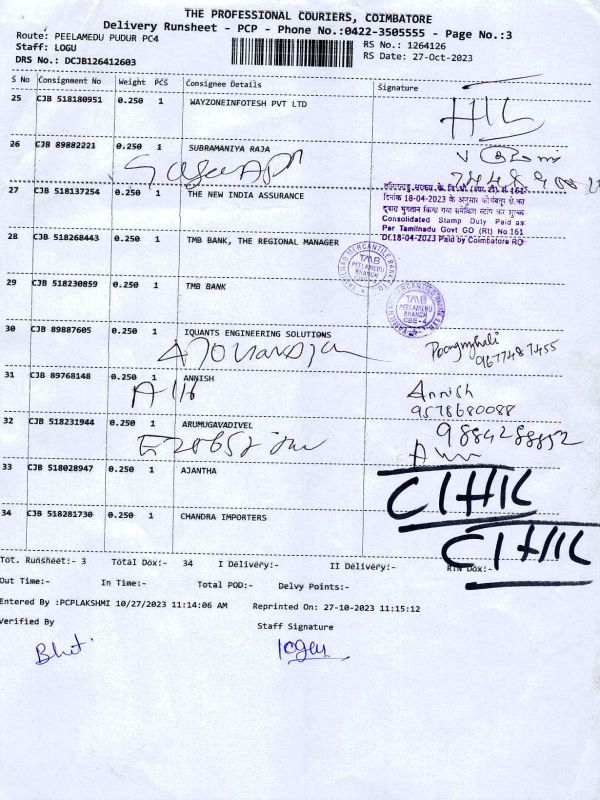 THE PROFESSIONAL COURIERS, COIMBATORE
Delivery Runsheet - PCP - Phone No.:0422-3505555 - Page No.:3
Route: PEELAMEDU PUDUR PC4
Staff: LOGU
DRS No.: DCJB126412603
RS No.: 1264126
RS Date: 27-Oct-2023
S No Consignment No Weight PCS Consignee Details Signature
25 CJB 518180951 0.250 1 WAYZONEINFOTESH PVT LTD
26 CJB 89882221 0.250 1 SUBRAMANIYA RAJA
27 CJB 518137254 0.250 1 THE NEW INDIA ASSURANCE
Consolidated Stamp Duty Paid as
Per Tamilnadu Govt GO (Rt) No.161
Dt.18-04-2023 Paid by Coimbatore RO
28 CJB 518268443 0.250 1 TMB BANK, THE REGIONAL MANAGER
TMB
PEELAMEDU
BRANCH
29 CJB 518230859 0.250 1 TMB BANK
TMB
PEELAMEDU
BRANCH
CBE-4
30 CJB 89887605 0.250 1 IQUANTS ENGINEERING SOLUTIONS
9677487455
31 CJB 89768148 0.250 1 ANNISH
Annish
9578680088
32 CJB 518231944 0.250 1 ARUMUGAVADIVEL
9884288852
33 CJB 518028947 0.250 1 AJANTHA
34 CJB 518281730 0.250 1 CHANDRA IMPORTERS
Tot. Runsheet:- 3 Total Dox:- 34 I Delivery:- II Delivery:- RTN Dox:-
Out Time:- In Time:- Total POD:- Delvy Points:-
Entered By :PCPLAKSHMI 10/27/2023 11:14:06 AM Reprinted On: 27-10-2023 11:15:12
Verified By Staff Signature